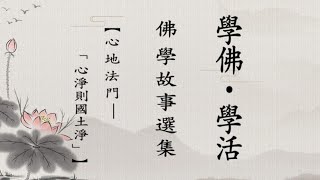 學佛·學活
佛學故事選集
【心地法門—
「心淨則國土淨」】